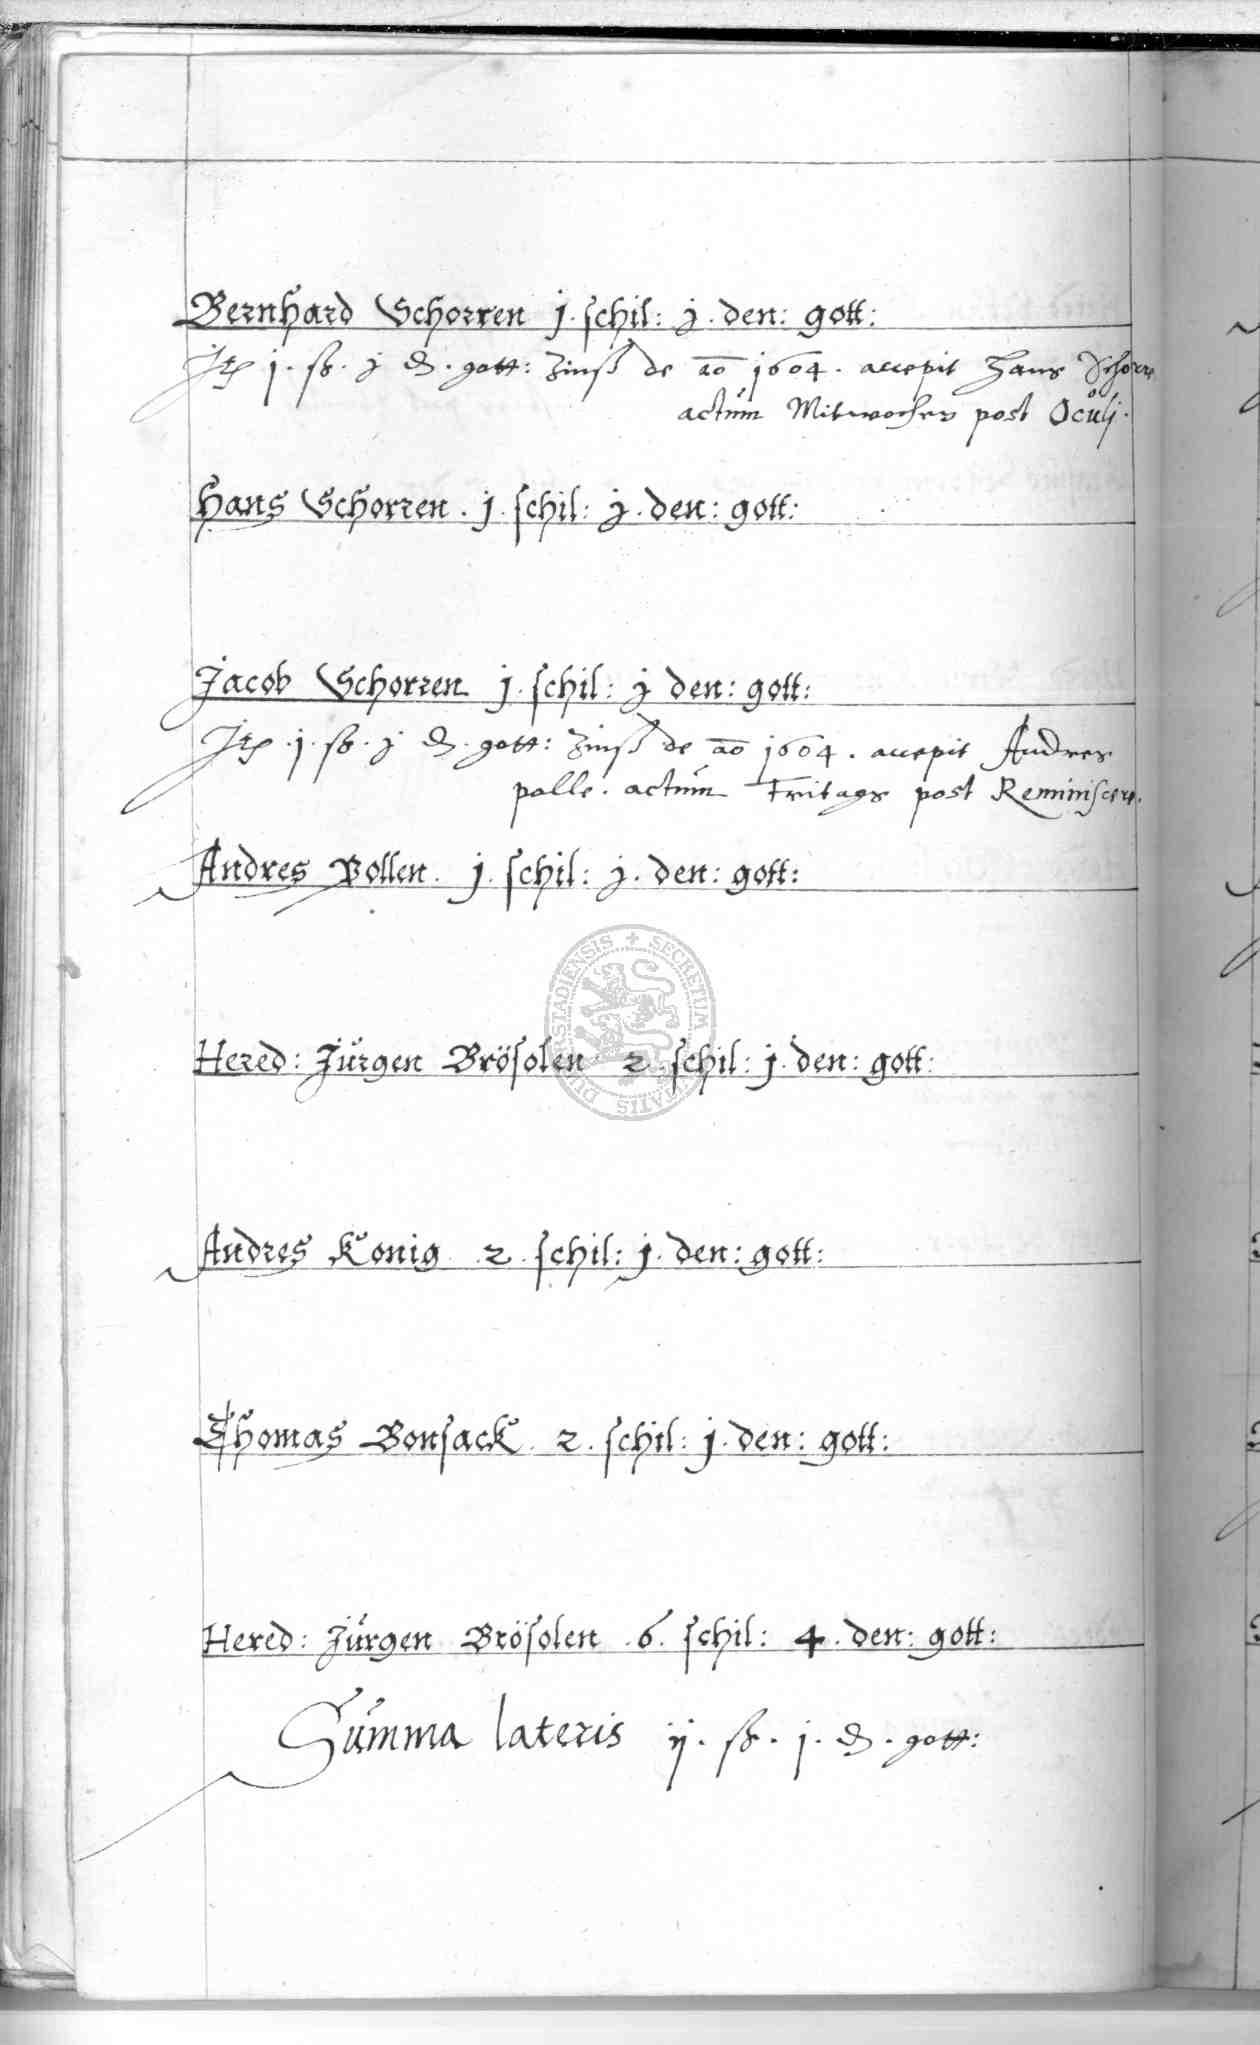 Bernhard Schorren j. schil: j. den: gott:
Jtem j. ß. j ₰. gott: Zinß de ao 1604. accepit Hans Schorre
actum Mitwoches post Oculj.
Hans Schorren. j. schil: j. den: gott:
Jacob Schorren j. schil: j den: gott:
Jtem .j. ß. j ₰. gott: Zinß de ao 1604. accepit Andres
polle. actum Fritags post Reminiscere.
Andres Pollen. j. schil: j. den: gott:
Hered: Jürgen Brösolen 2. schil: j. den: gott:
Andres Konig. 2. schil: j. den: gott:
Thomas Bonsack. 2. schil: j. den: gott:
Hered: Jürgen Brösolen .6. schil: 4. den: gott:
Summa lateris ij. ß. j. ₰. gott:
DUDERSTADIENSIS + SECRETUM CIVITATIS